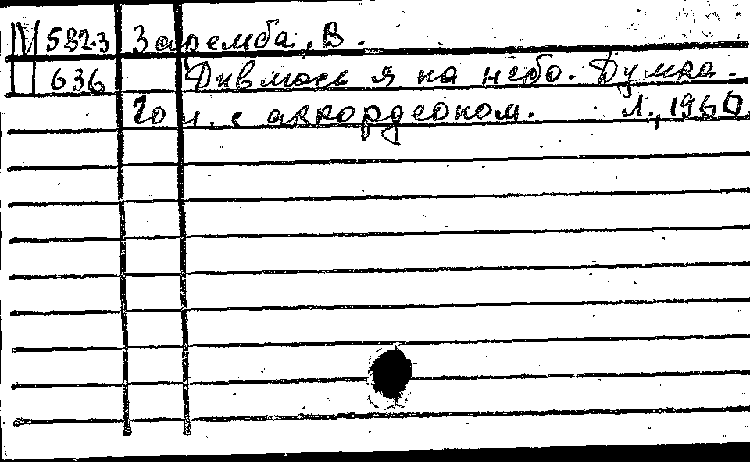 М 5823 Заремба, В.
636 Дивлюсь я на небо. Думка.
Гол. с аккордеоном. Л., 1960